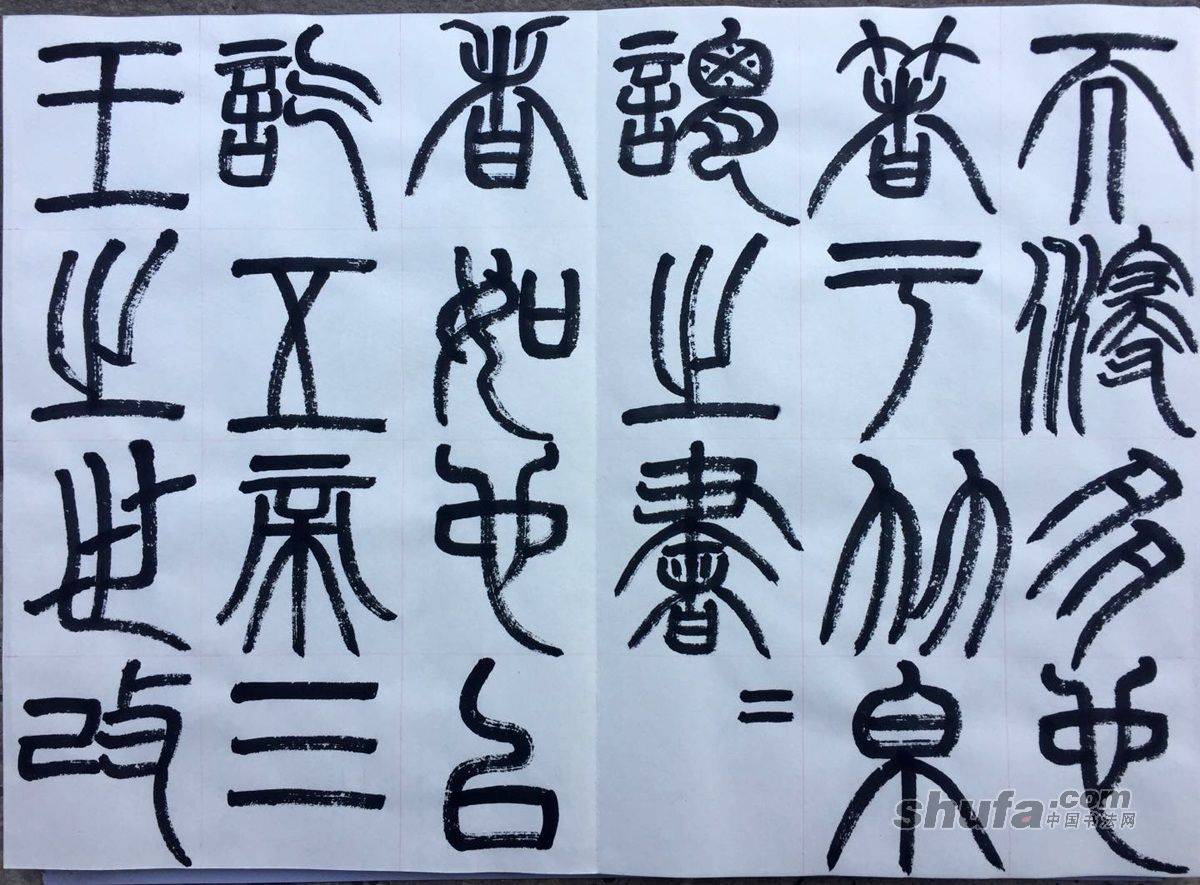 而浸多也
著于竹帛
謂之書=
者如也以
訖五帝三
王之世改
shufa.com
中国书法网